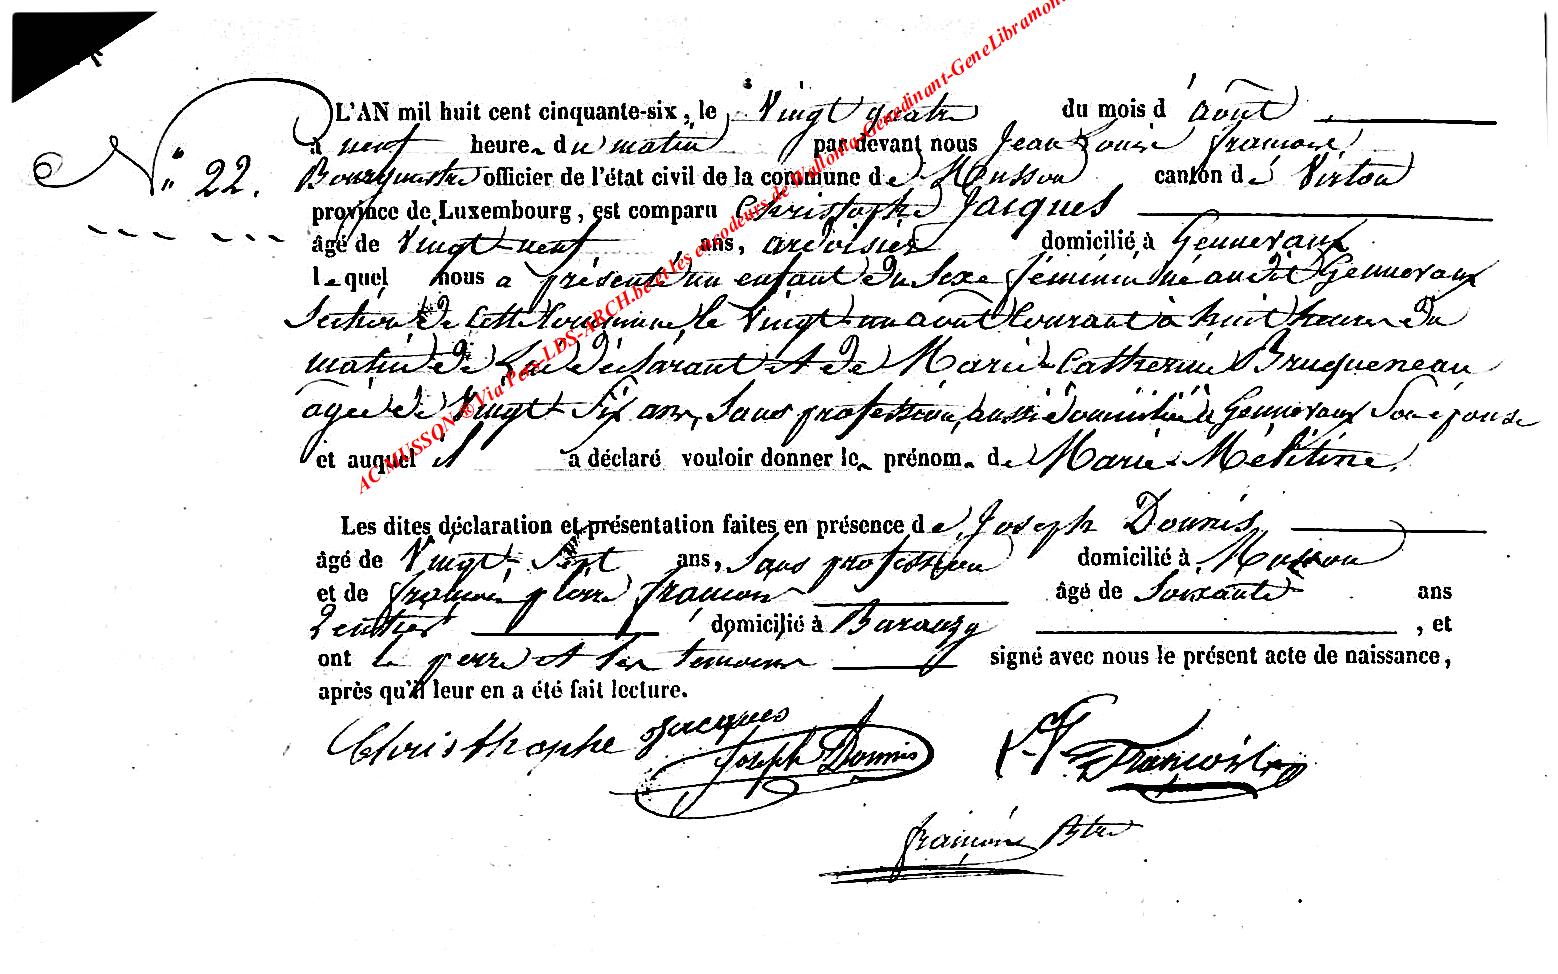 L'AN mil huit cent cinquante-six, le Vingt quatre du mois d'août
N° 22.
à neuf heure du matin par devant nous Jean Louis françois
Bourgmestre officier de l'état civil de la commune de Musson canton de Virton
province de Luxembourg, est comparu Christophe Jacques
âgé de Vingt-neuf ans, ardoisier domicilié à Gennevaux
lequel nous a présenté un enfant du sexe féminin né audit Gennevaux
Section de cette Commune le Vingt-un août Courant à huit heures du
matin de lui déclarant et de Marie-Catherine Bruqueneau
agée de Vingt-Six ans, Sans profession, aussi domiciliée à Gennevaux Son épouse
et auquel il a déclaré vouloir donner le prénom de Marie-Mélitine.
Les dites déclaration et présentation faites en présence de Joseph Dounis
âgé de Vingt-Sept ans, Sans profession domicilié à Musson
et de françois pierre françois âgé de Soixante ans
Rentier domicilié à Baranzy , et
ont le perre et les témoins signé avec nous le présent acte de naissance,
après qu'il leur en a été fait lecture.
Christhophe Jacques
Joseph Dounis
françois
françois Btre
AC MUSSON ® Via Pers-LDS-ARCH.be et les encodeurs de Wallonia-Genedinant-GeneLibramon